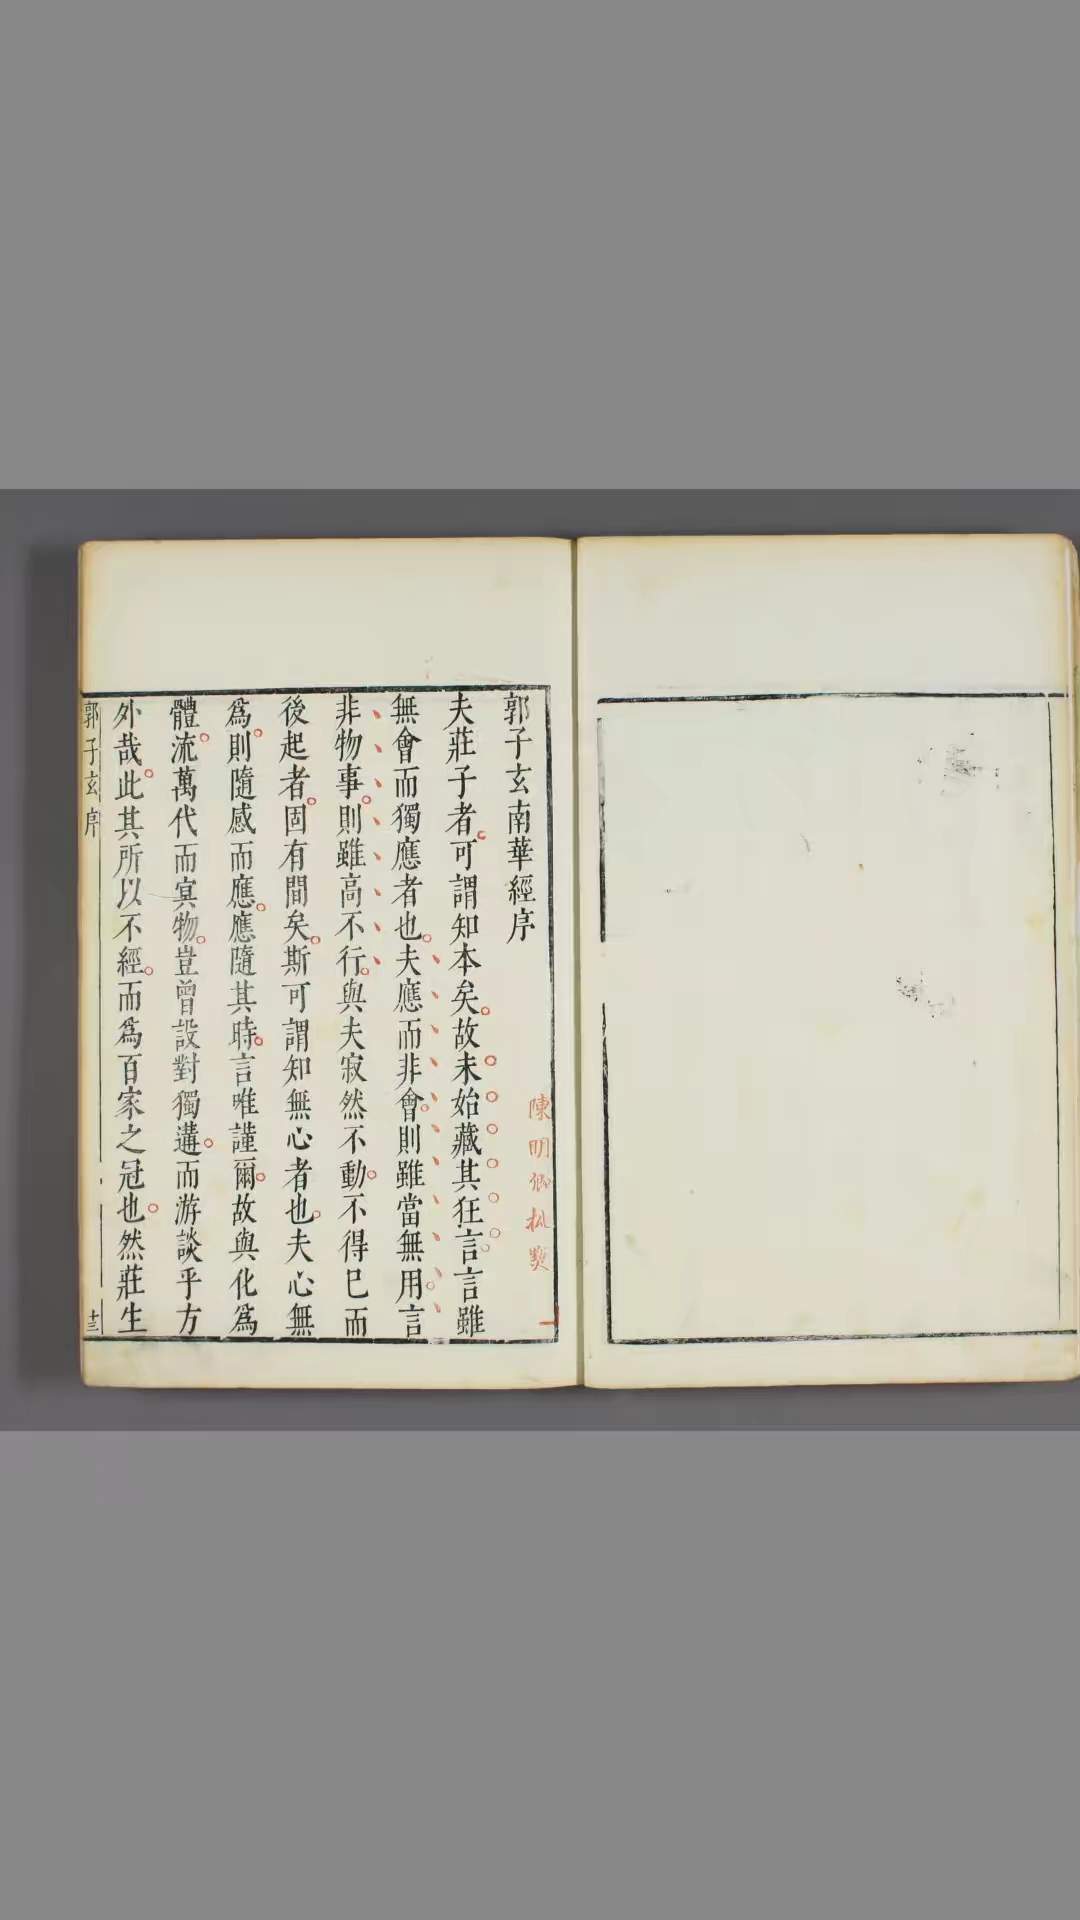 郭子玄南華經序
陳明卿批
夫莊子者可謂知本矣故未始藏其狂言言雖
無會而獨應者也夫應而非會則雖當無用言
非物事則雖高不行與夫寂然不動不得已而
後起者固有間矣斯可謂知無心者也夫心無
爲則隨感而應應隨其時言唯謹爾故與化爲
體流萬代而㝠物豈曾設對獨遘而游談乎方
外哉此其所以不經而爲百家之冠也然莊生
郭子玄序
十三